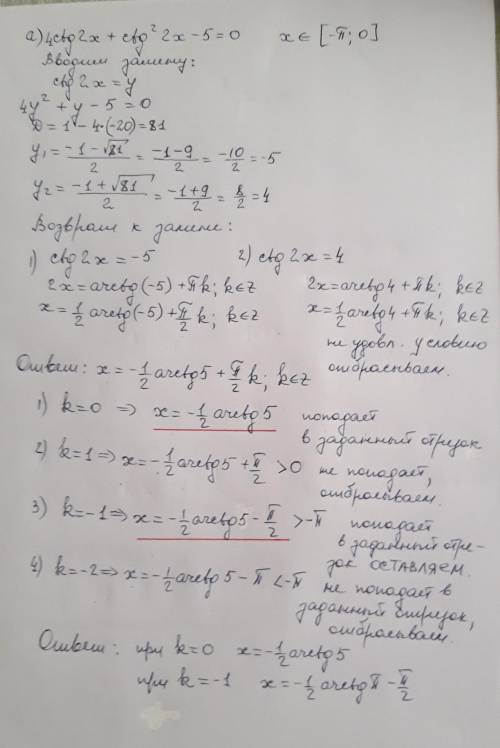 а) 4ctg2x + ctg² 2x - 5 = 0    x ∈ [-π; 0]
Вводим замену:
ctg 2x = y
4y² + y - 5 = 0
D = 1 - 4·(-20) = 81
y₁ = (-1 - √81)/2 = (-1-9)/2 = -10/2 = -5
y₂ = (-1 + √81)/2 = (-1+9)/2 = 8/2 = 4
Возврат к замене:
1) ctg 2x = -5    2) ctg 2x = 4
2x = arcctg(-5) + πk; k∈Z    2x = arcctg4 + πk; k∈Z
x = 1/2 arcctg(-5) + π/2 k; k∈Z    x = 1/2 arcctg4 + πk; k∈Z
не удовл. условию
отбрасываем.
Ответ: x = -1/2 arcctg5 + π/2 k; k∈Z
1) k=0 ⇒ x = -1/2 arcctg5    попадает
в заданный отрезок
2) k=1 ⇒ x = -1/2 arcctg5 + π/2 > 0    не попадает,
отбрасываем.
3) k=-1 ⇒ x = -1/2 arcctg5 - π/2 > -π    попадает
в заданный отре-
зок ОСТАВЛЯЕМ.
4) k=-2 ⇒ x = -1/2 arcctg5 - π < -π    не попадает в
заданный отрезок,
отбрасываем.
Ответ: при k=0    x = -1/2 arcctg5
при k=-1    x = -1/2 arcctgπ - π/2